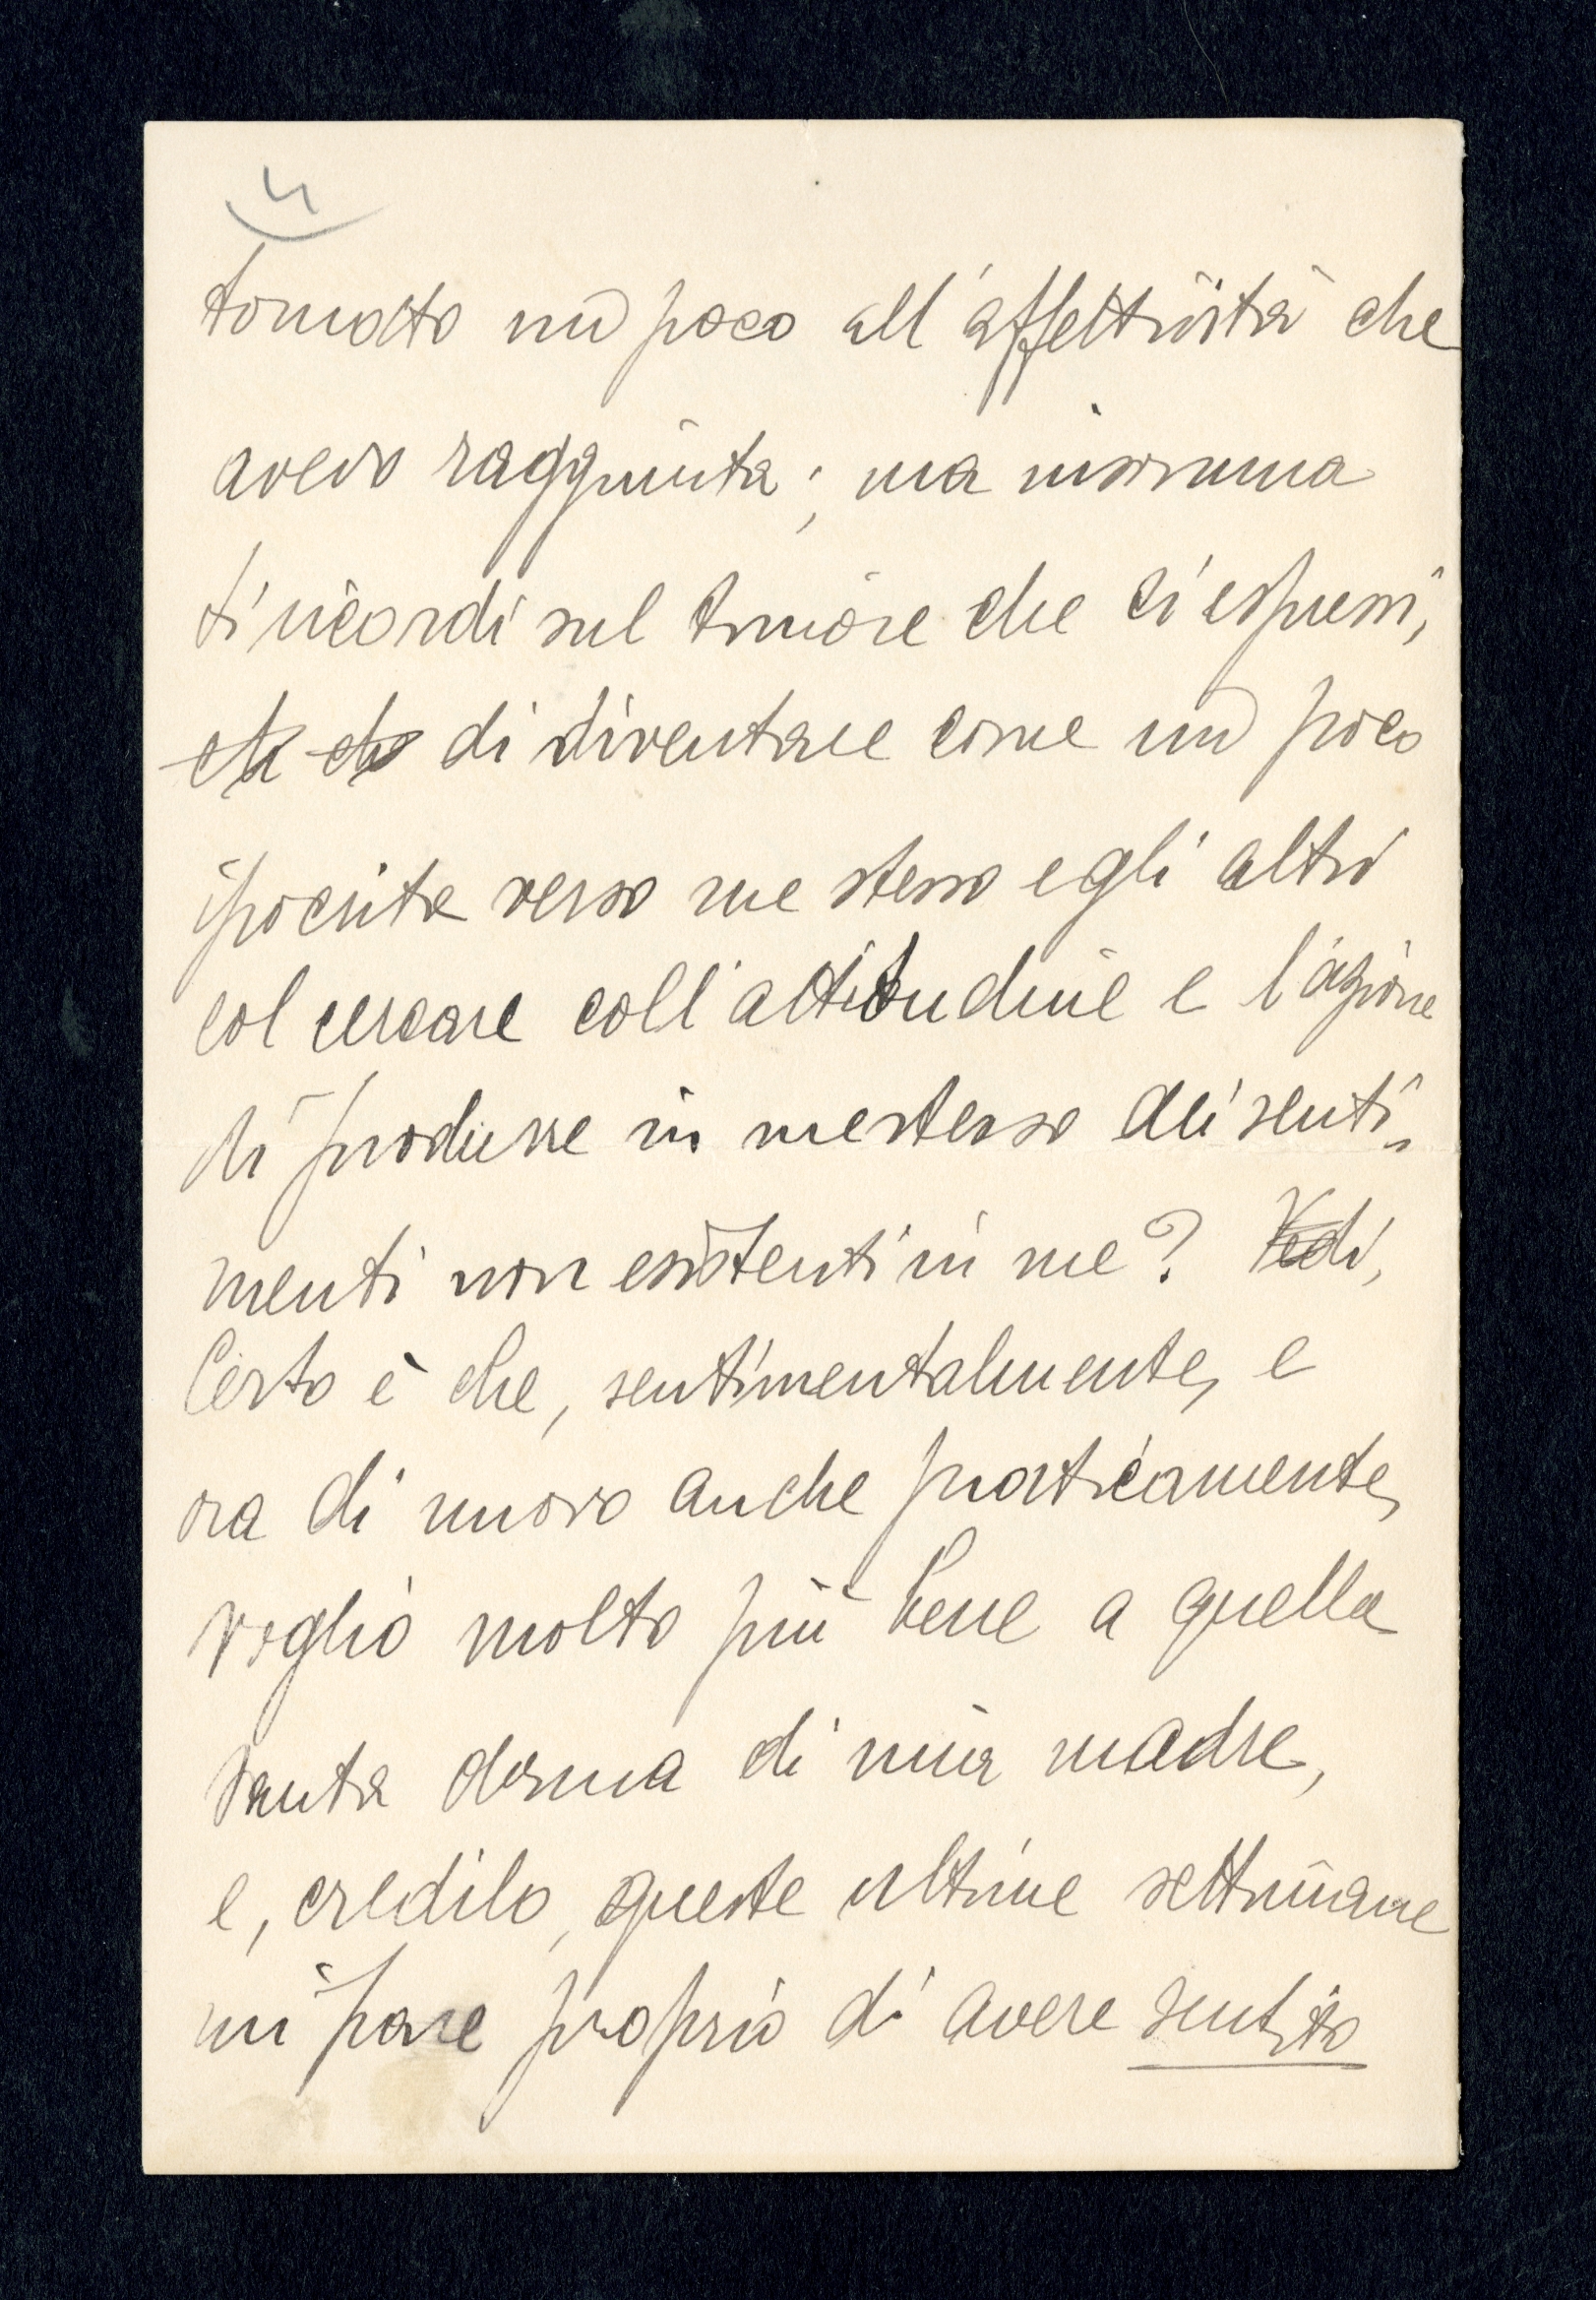 4
tornato un poco all'affettività che
avevo raggiunta; ma insomma
ti ricordi sul timore che ti espressi,
che che di diventare come un poco
ipocrita verso me stesso e gli altri
col cercare coll'attitudine e l'azione
di produrre in me stesso dei senti-
menti non esistenti in me? Vedi,
Certo è che, sentimentalmente, e
ora di nuovo anche praticamente,
voglio molto più bene a quella
santa donna di mia madre,
e, credilo, queste ultime settimane
mi pare proprio di avere sentito